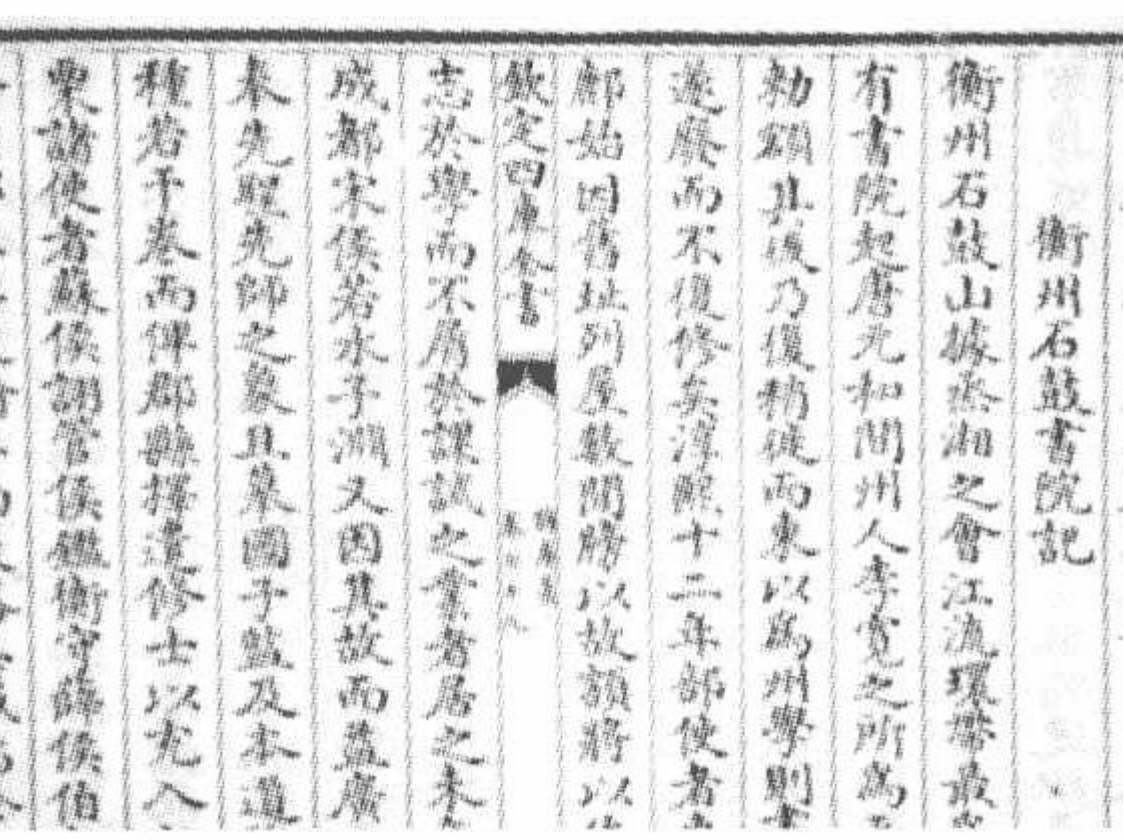 衡州石鼓書院記
衡州石鼓山據烝湘之會江流環帶最
有書院起唐元和間州人李寛之所為
勅額其後乃復稍徙而東以為州學則
遂廢而不復修矣淳熙十二年部使者
鄱始因舊址列屋數間牓以故額將以
欽定四庫全書
志於學而不屑於課試之業者居之未
成都宋侯若水子淵又因其故而益廣
奉先聖先師之象且摹國子監及本道
種若干卷而俾郡縣擇遣修士以充入
東諸使者蘇侯詡管侯鑑衡守薛侯伯